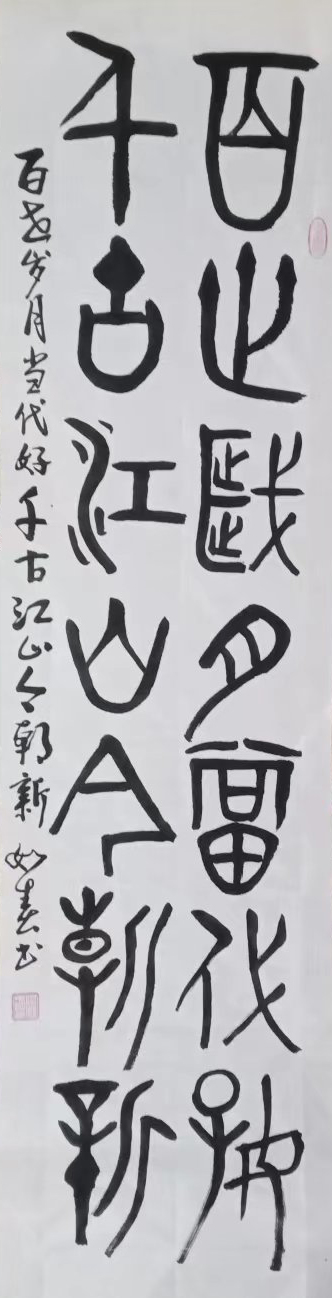 百世歲月當代好
千古江山今朝新
百世岁月当代好千古江山今朝新 如春书